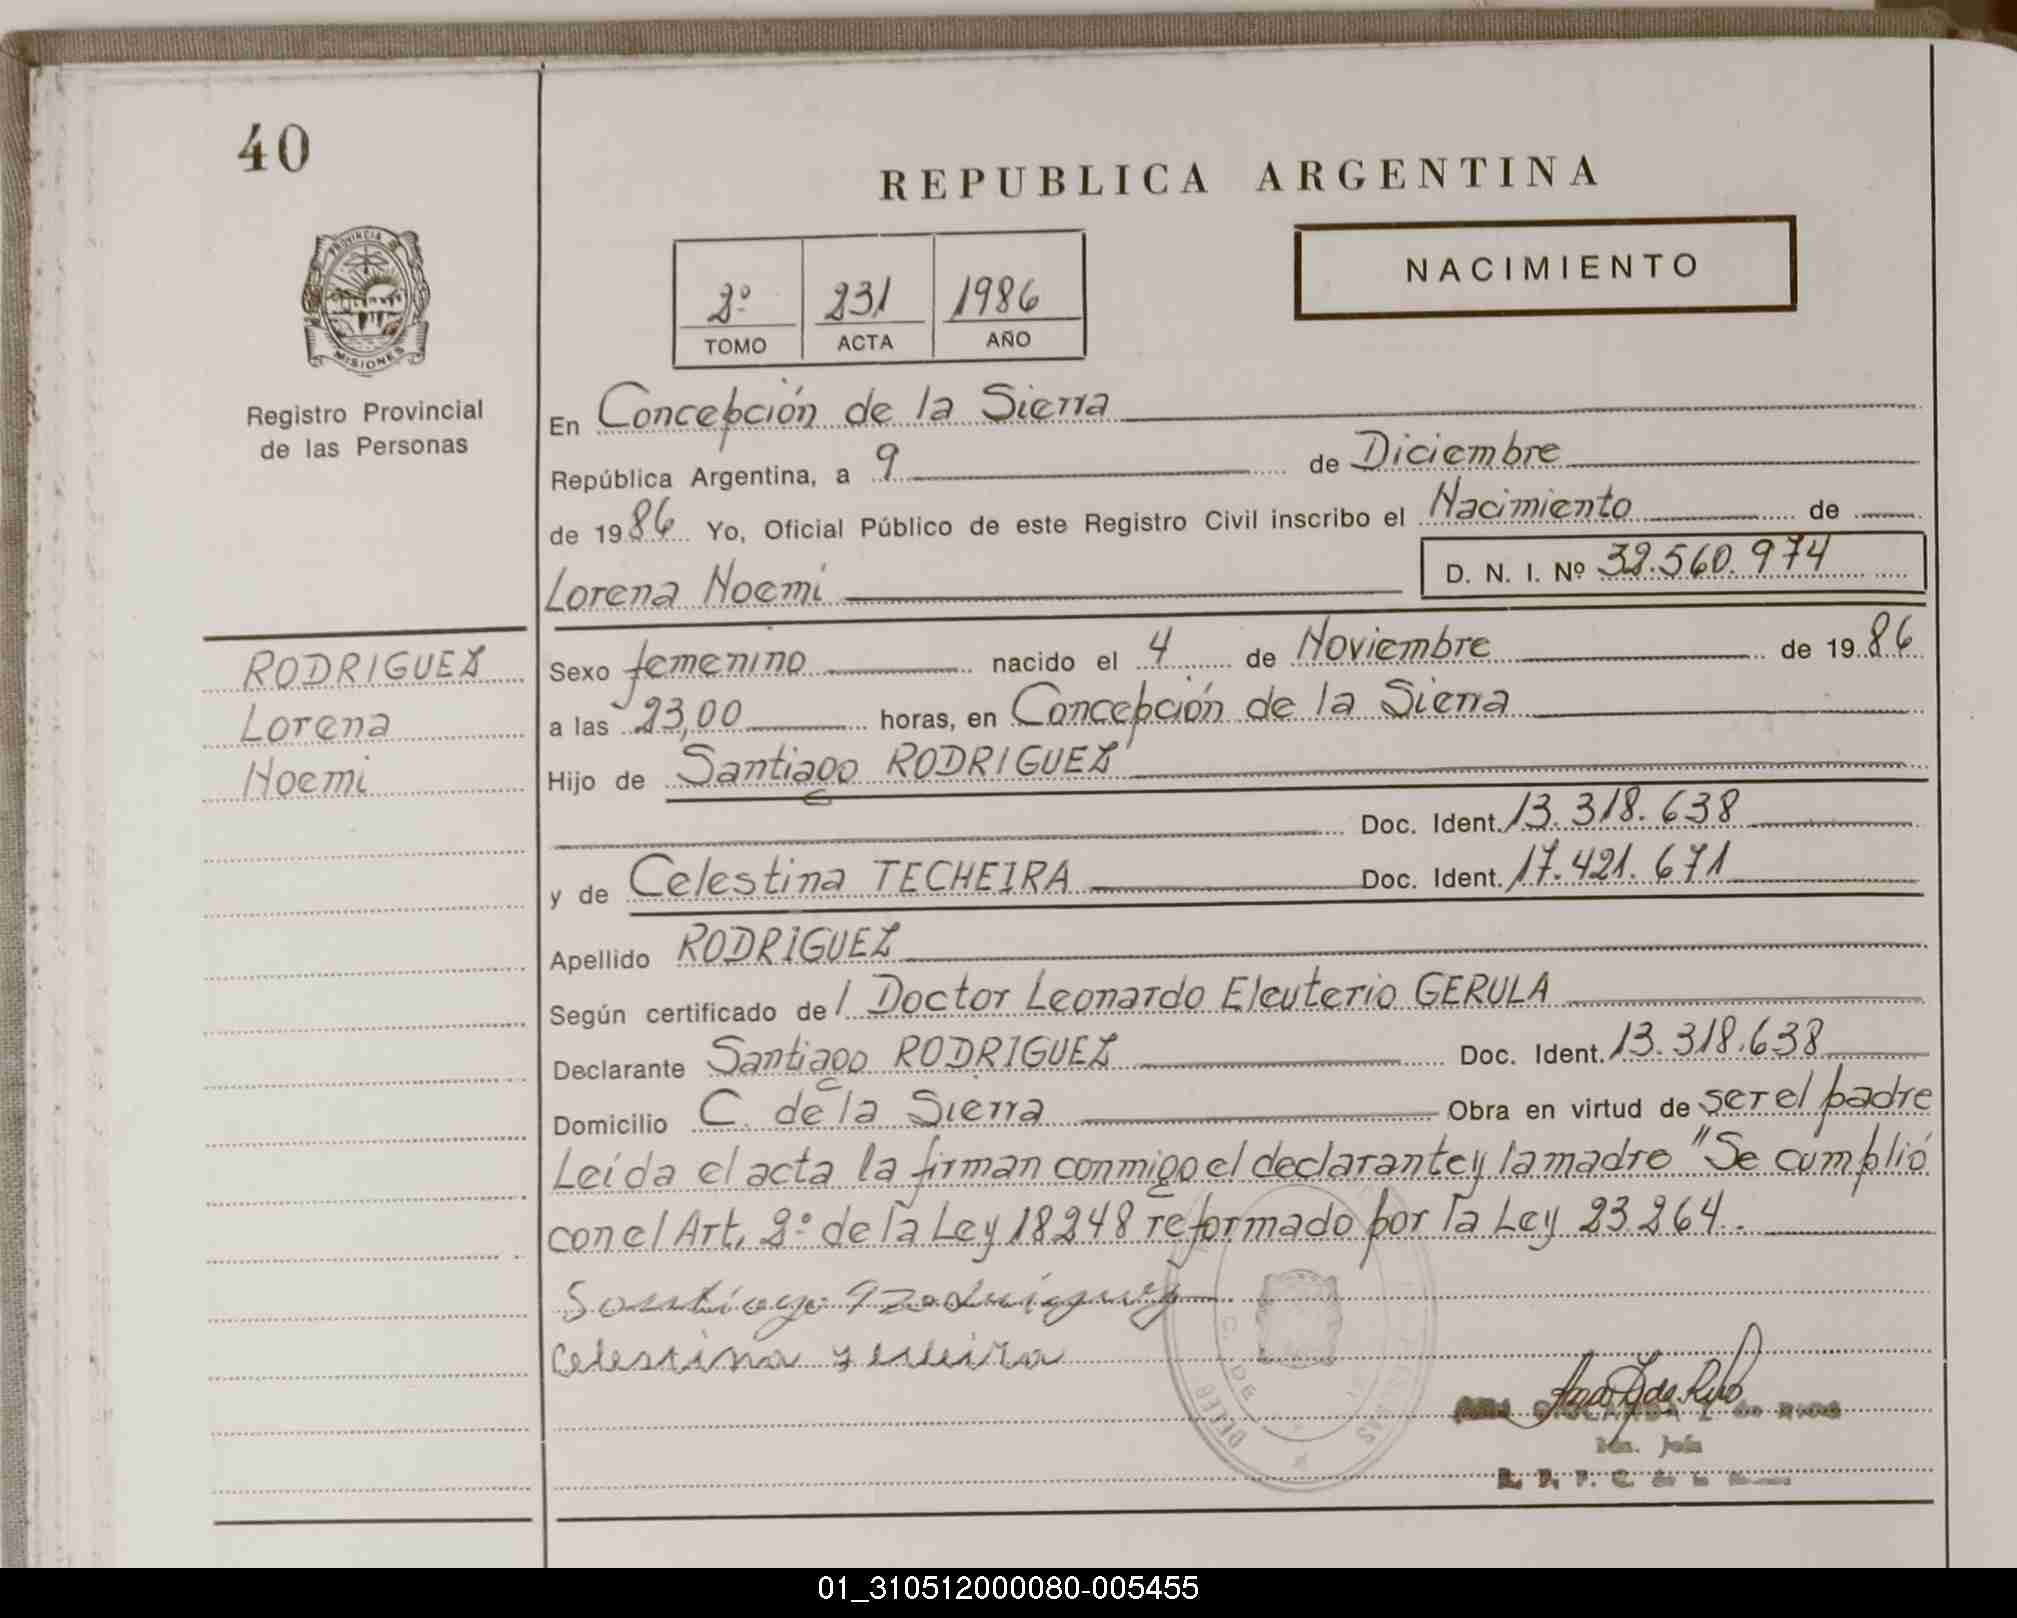 40
REPUBLICA ARGENTINA
PROVINCIA DE
MISIONES
Registro Provincial
de las Personas
2º 231 1986
TOMO ACTA AÑO
NACIMIENTO
En Concepción de la Sierra
República Argentina, a 9 de Diciembre
de 1986 Yo, Oficial Público de este Registro Civil inscribo el Nacimiento de
Lorena Noemi D. N. I. Nº 32.560.974
RODRIGUEZ
Lorena
Noemi
Sexo femenino nacido el 4 de Noviembre de 1986
a las 23,00 horas, en Concepción de la Sierra
Hijo de Santiago RODRIGUEZ
Doc. Ident. 13.318.638
y de Celestina TECHEIRA Doc. Ident. 17.421.671
Apellido RODRIGUEZ
Según certificado de l Doctor Leonardo Eleuterio GERULA
Declarante Santiago RODRIGUEZ Doc. Ident. 13.318.638
Domicilio C. de la Sierra Obra en virtud de ser el padre
Leída el acta la firman conmigo el declarante y la madre "Se cumplió
con el Art. 2º de la Ley 18248 reformado por la Ley 23264.
Santiago Rodriguez
Celestina
01_310512000080-005455